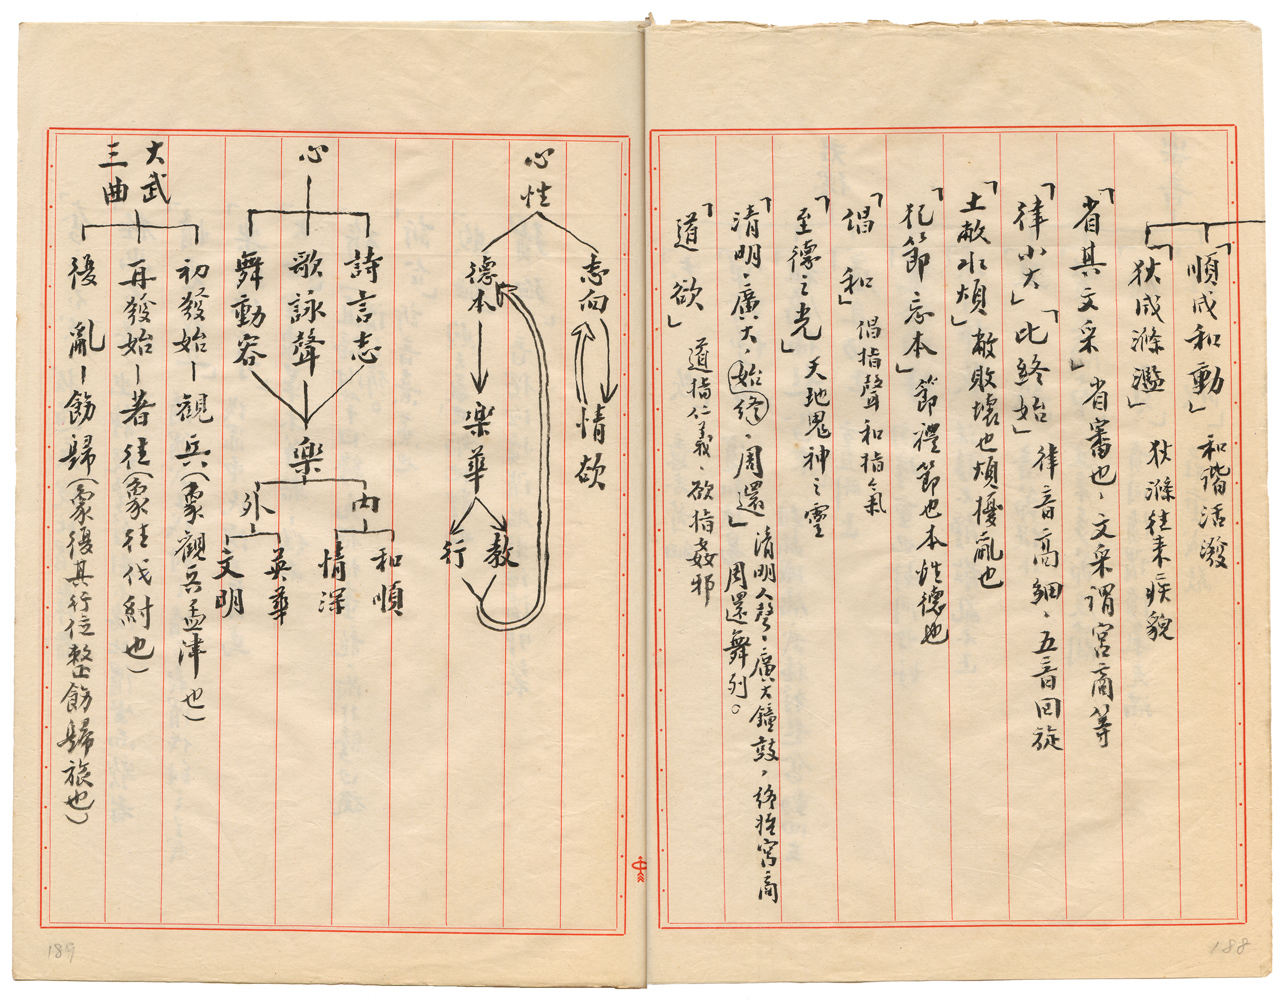 「順成和動」 和諧活潑
「狄成滌濫」 狄滌往来疾貌
「省其文采」 省審也、文采謂宮商等
「律小大」「比終始」 律音高細、五音回旋
「土敝水煩」 敝敗壞也煩擾亂也
「犯節忘本」 節禮節也本性德也
「倡和」 倡指聲和指氣
「至德之光」 天地鬼神之靈
「清明、廣大、始終、周還」 清明人聲、廣大鐘鼓、終始宮商
周還舞列。
「道欲」 道指仁義、欲指姦邪
188
心性
志向
情欲
德本
樂華
教
行
心
詩言志
歌詠聲
舞動容
樂
內
和順
情深
外
英華
文明
大武
三曲
初發始－觀兵(象觀兵孟津也)
再發始－著往(象往伐紂也)
復亂－飭歸(象復其行位整飭歸旅也)
189